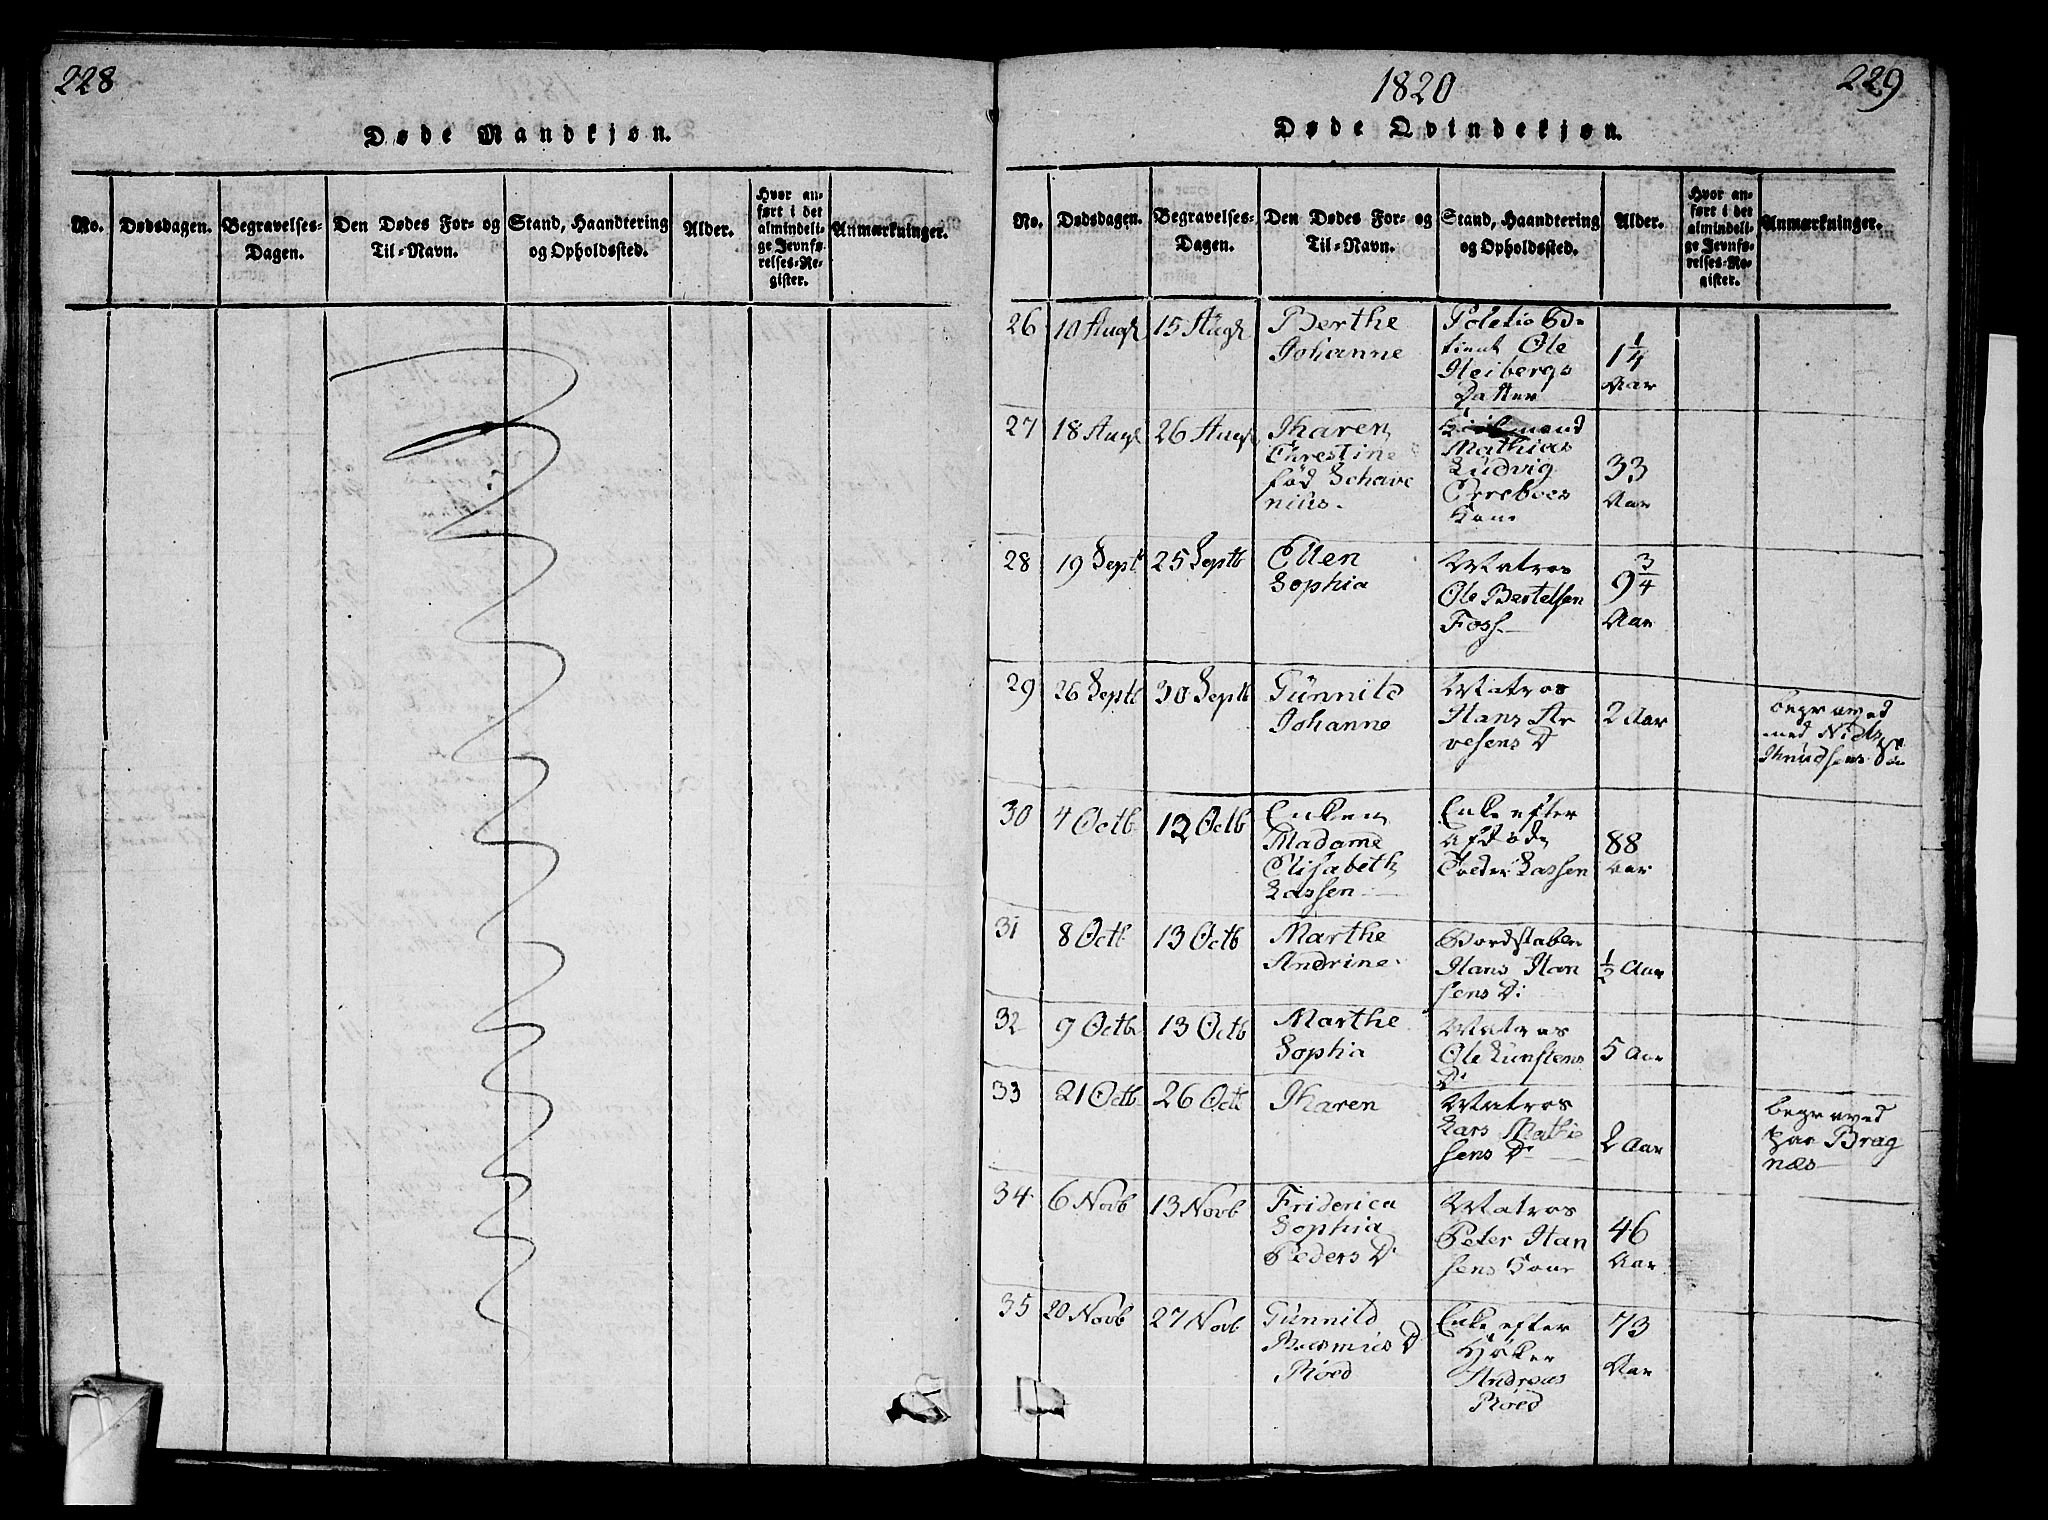 228
Døde Mandkjøn.
No.
Dødsdagen.
Begravelses-
Dagen.
Den Dødes For- og
Til-Navn.
Stand, Haandtering
og Opholdssted.
Alder.
Hvor an-
ført i det
almindeli-
ge Jevnfø-
relses-Re-
gister.
Anmærkninger.
1820
229
Døde Qvindekjøn.
No.
Dødsdagen.
Begravelses-
Dagen.
Den Dødes For- og
Til-Navn.
Stand, Haandtering
og Opholdssted.
Alder.
Hvor an-
ført i det
almindeli-
ge Jevnfø-
relses-Re-
gister.
Anmærkninger.
26
10 Augt
15 Augt
Berthe
Johanne
Ole
Heibergs
Datter
1 1/4
Aar
27
18 Augt
26 Augt
Tharen
Chrestine
fød Schave
nius.
Mathias
Ludvig
Erreboes
Kone
33
Aar
28
19 Septb
25 Septb
Ellen
Sophia
Matros
Ole Bertelsen
Foss
9 3/4
Aar
29
26 Septb
30 Septb
Günnild
Johanne
Matros
Hans Ar
vesens D
2 Aar
begraved
med Niels
Knudsens Søn
30
4 Octb
12 Octb
Enken
Madame
Elisabeth
Lassen
Enke efter
afdøde
Peder Lassen
88
Aar
31
8 Octb
13 Octb
Marthe
Andrine
Bordstabler
Hans Han
sens D:
1/2 Aar
32
9 Octb
13 Octb
Marthe
Sophia
Matros
Ole
D:
5 Aar
33
21 Octb
26 Octb
Tharen
Matros
Lars Mathie
sens D
2 Aar
begraved
paa Brag
næs
34
6 Novb
13 Novb
Friderica
Sophia
Peders D
Matros
Peter Han
sens Kone
46
Aar
35
20 Novb
27 Novb
Günnild
Rasmus D
Röed
Enke efter
Høker
Andreas
Röed
73
Aar